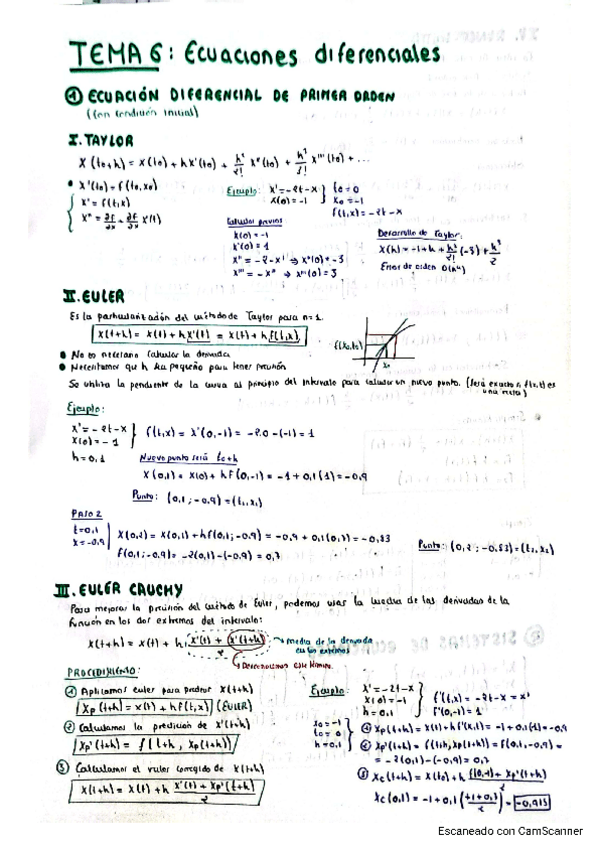 TEMA 6: Ecuaciones diferenciales
① ECUACIÓN DIFERENCIAL DE PRIMER ORDEN
(Con condición inicial)
I. TAYLOR
X(t₀+h) = X(t₀) + hX'(t₀) + h²/2! X''(t₀) + h³/3! X'''(t₀) + ...
• X'(t₀) = f(t₀,x₀)
X' = f(t,x)
Ejemplo: X' = -2t-x
X(0) = -1
t₀ = 0
x₀ = -1
f(t,x) = -2t-x
Calculos previos
X(0) = -1
X'(0) = 1
X'' = -2-x' ⇒ X''(0) = -3
X''' = -x'' ⇒ X'''(0) = 3
Desarrollo de Taylor:
Error de orden
II. EULER
Es la particularización del método de Taylor para n=1
X(t+h) = X(t) + hX'(t) = X(t) + hf(t,x)
f(x₀,t₀)
x₀
• No es necesario calcular la derivada
• Necesitamos que h sea pequeño para tener precisión
Se utiliza la pendiente de la curva al principio del intervalo para calcular un nuevo punto. (Será exacto si f(t,x) es
una recta)
Ejemplo:
X' = -2t-x
X(0) = -1
f(t,x) = X'(0,-1) = -2·0-(-1) = 1
h = 0,1
Nuevo punto será t₀+h
X(0,1) = X(0) + hf(0,-1) = -1+0,1(1) = -0,9
Punto: (0,1; -0,9) = (t₁,x₁)
PASO 2
t=0,1
x=-0,9
X(0,2) = X(0,1) + hf(0,1;-0,9) = -0,9 + 0,1(0,7) = -0,83
f(0,1;-0,9) = -2(0,1)-(-0,9) = 0,7
Punto: (0,2; -0,83) = (t₂,x₂)
III. EULER CAUCHY
Para mejorar la precisión del método de Euler, podemos usar la media de las derivadas de la
función en los dos extremos del intervalo:
X(t+h) = X(t) + h · (X'(t) + X'(t+h))/2
media de la derivada
en los extremos
Desconocemos este término.
PROCEDIMIENTO:
① Aplicamos euler para predecir X(t+h)
Xp(t+h) = X(t) + hf(t,x) (EULER)
② Calculamos la predicción de X'(t+h)
Xp'(t+h) = f(t+h, Xp(t+h))
③ Calculamos el valor corregido de X(t+h)
X(t+h) = X(t) + h (X'(t) + Xp'(t+h))/2
Ejemplo: X' = -2t-x
X(0) = -1
h = 0,1
x₀ = -1
t₀ = 0
h = 0,1
= -2(0,1)-(-0,9) = 0,7
Xc(0,1) = -1+0,1 ((1+0,7)/2) = -0,915
Escaneado con CamScanner